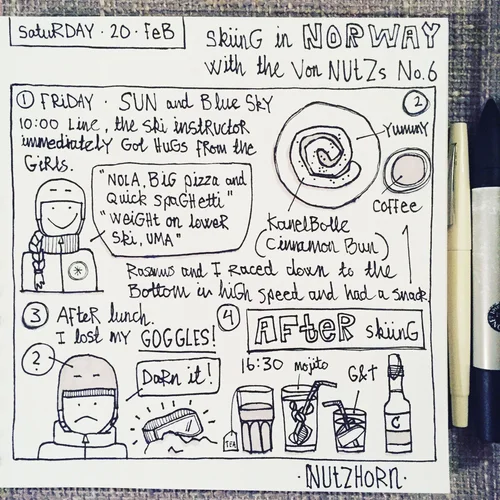 SATURDAY · 20 · FEB
SKIING in NORWAY
with the Von NUTZs No.6
① FRIDAY · SUN and Blue SKY
10:00 Line, the ski instructor
immediately Got HuGs from the
GiRls.
"NOLA, BiG pizza and
Quick spaGHetti"
"WeiGHt on loweR
Ski, UMA"
②
YummY
Coffee
KanelBolle
(Cinnamon Bun)
Rasmus and I Raced down to the
Bottom in hiGH speed and had a snack
③ AfteR lunch.
I lost my GOGGLES!
?
DaRn it!
④ AFteR skiinG
16:30
mojito
G&t
TEA
C
·NUtZHORN·